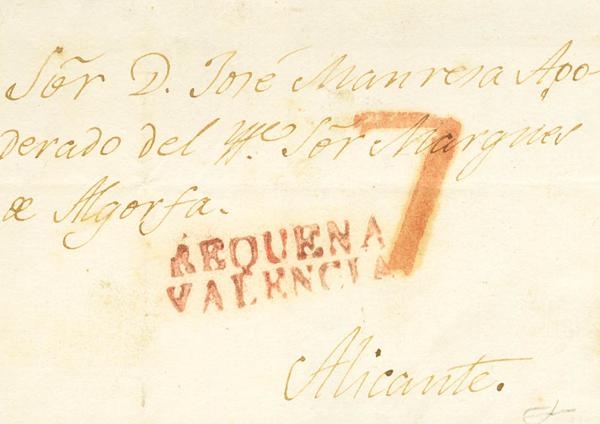 Sōr D. José Manresa Apo-
derado del Ille Sōr Marques
de Algorfa.
7
REQUENA
VALENCIA
Alicante.